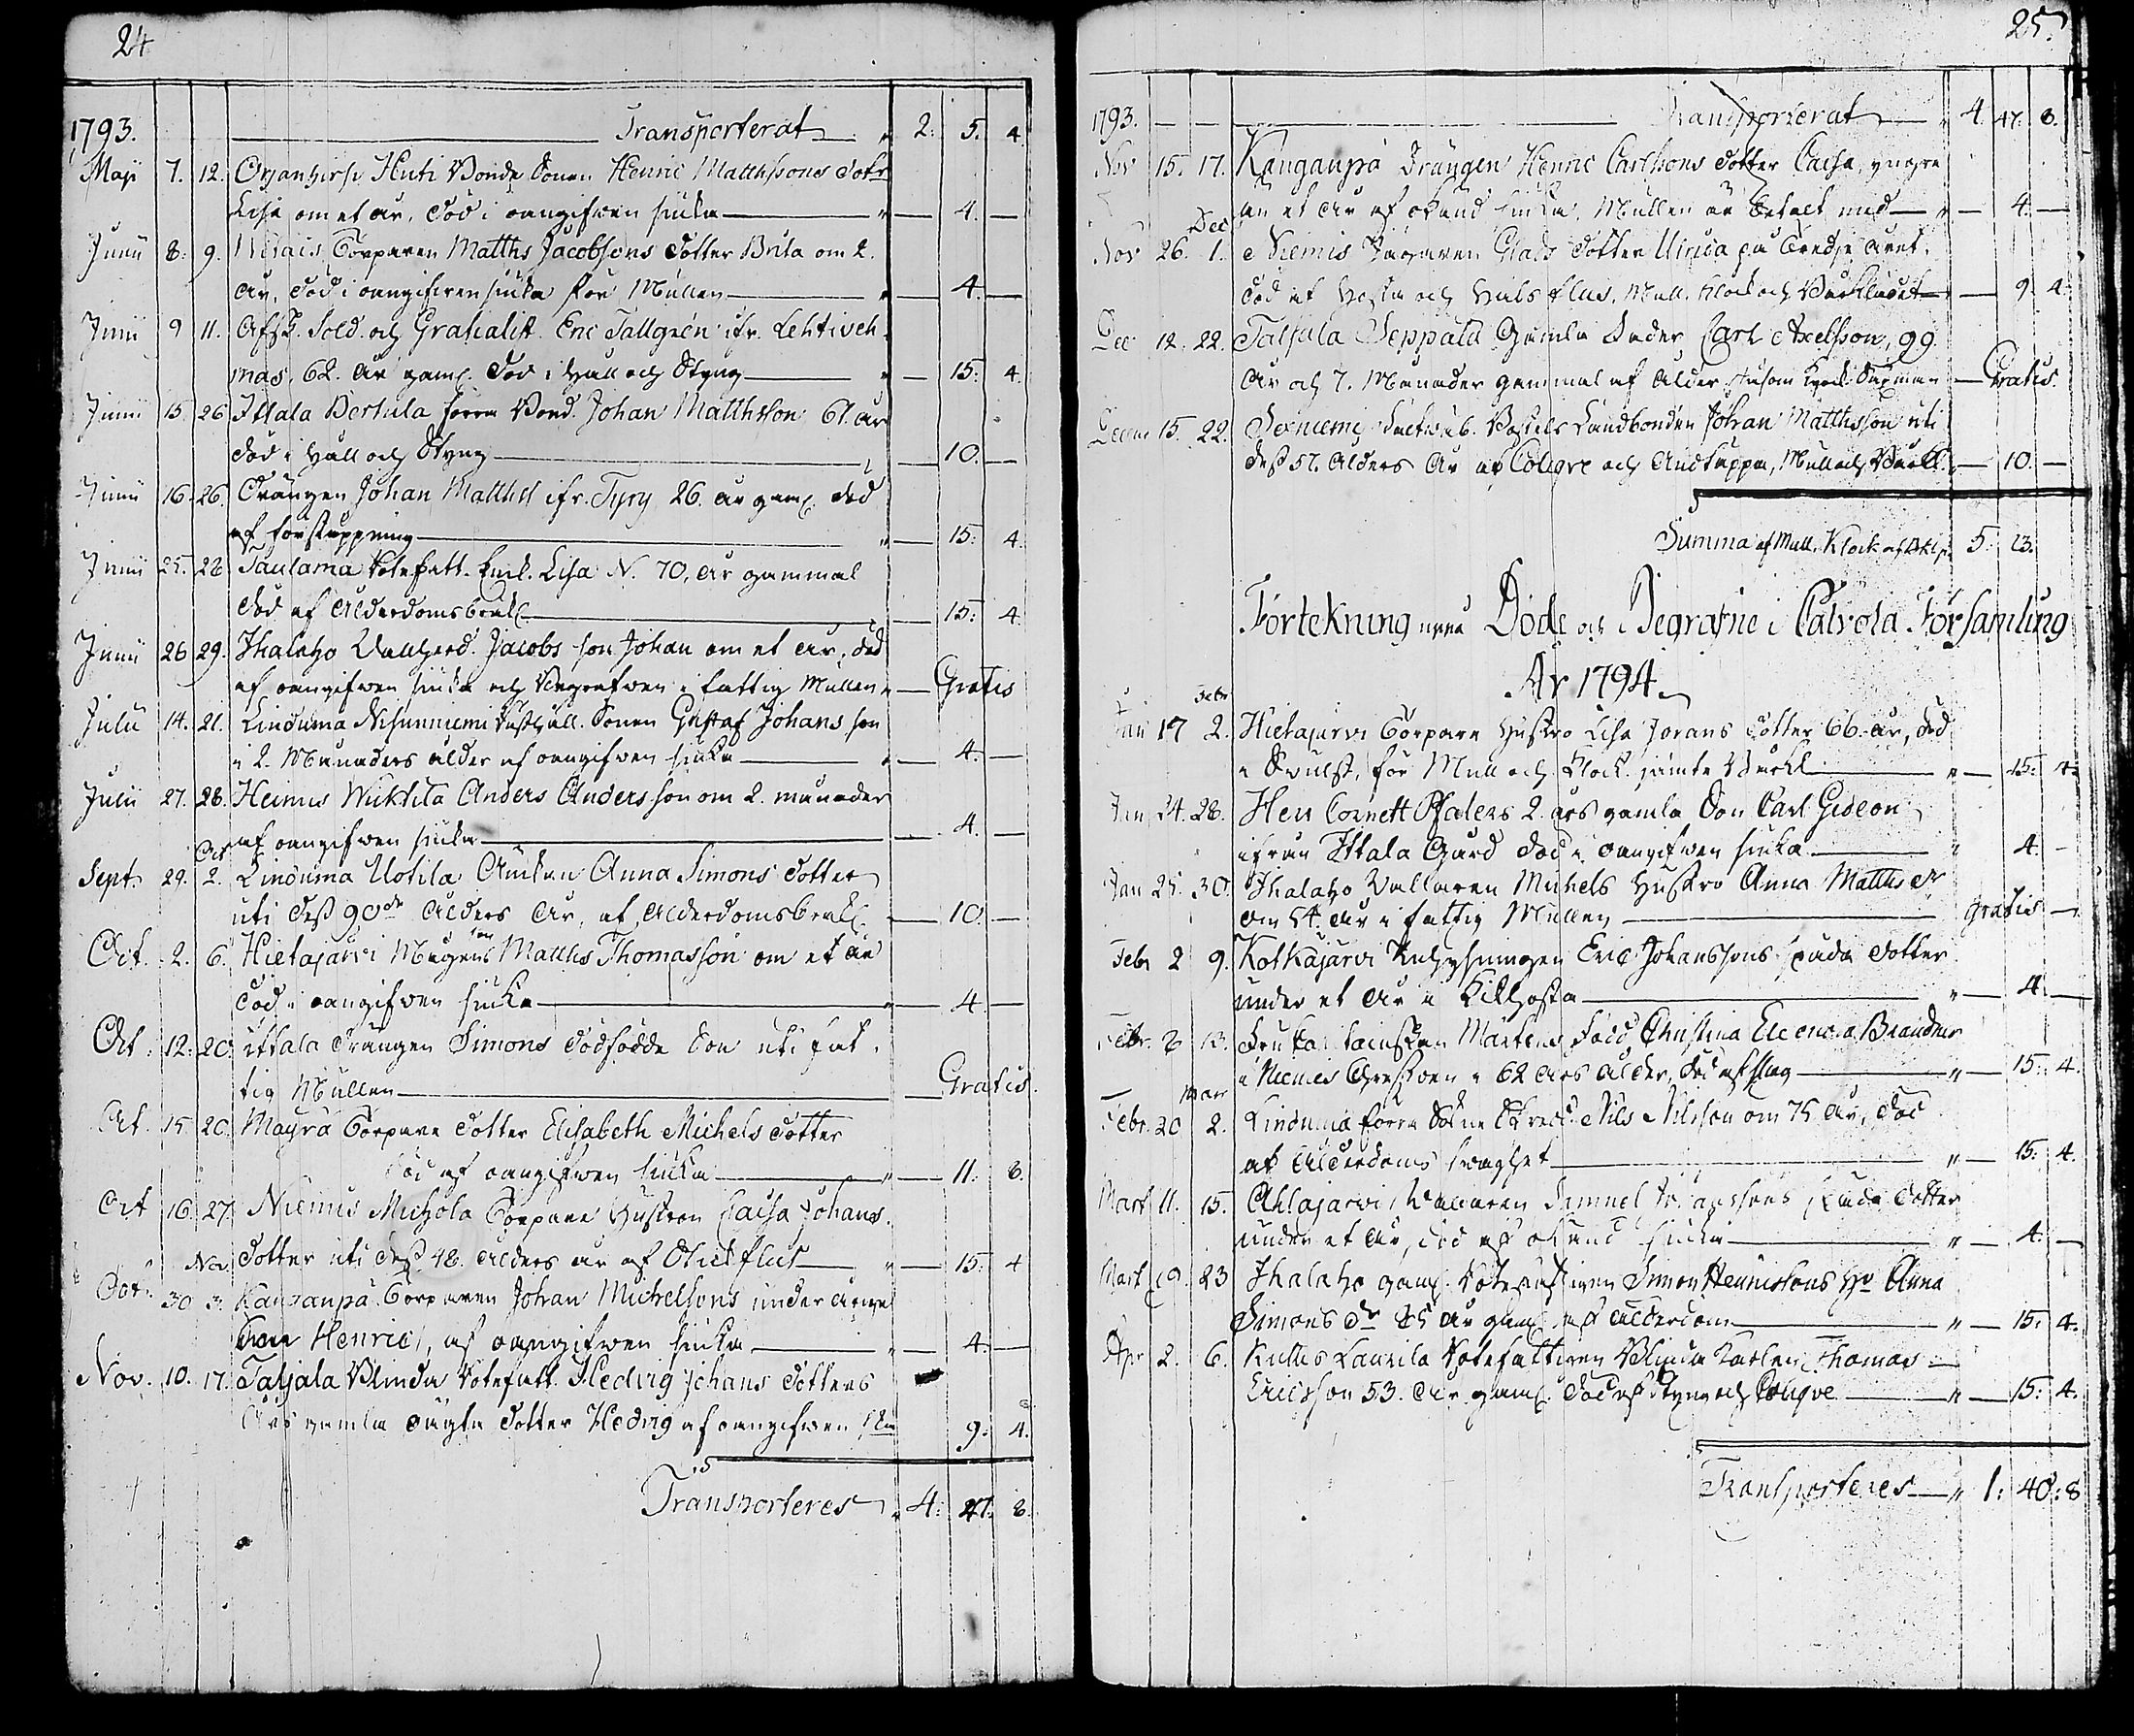 24
1793. Transporterat " 2: 5. 4.
Maji 7. 12. Orjanhirsi Huti Bonde Sonen Henric Matthssons Dotr
Lisa om et år, död i oangifwen siuka " 4.
Junii 8. 9. Torparen Matths Jacobsons dotter Brita om 2.
år, död i oangifwen siuka för Mullen " 4.
Junii 9 11. Afsk. Sold. och Gratialist Eric Tallgrén ifr. Lehtiveh-
mas, 62. år gaml. död i håll och Styng " 15: 4.
Junii 15 26 Ittala Bertula förra Bond. Johan Matthsson 61. år
död i håll och Styng 10.
Junii 16. 26. Drängen Johan Matths ifr. Tyry 26. år gaml. död
af förstoppning " 15: 4.
Junii 25. 28 Taulama Rotefatt. Enk. Lisa N. 70. år gammal
död af Ålderdomsbräckl. 15: 4
Junii 26 29. Ihalaho Wallherd. Jacobs son Johan om et år, död
af oangifwen siuka och Begrafwen i fattig Mullen " Gratis
Julii 14. 21. Linduma Nisunniemi Sonen Gustaf Johans son
i 2. Månaders ålder af oangifwen siuka " 4.
Julii 27. 28. Heimis Wicktila Anders Anders son om 2. månader
af oangifwen siuka 4.
Oct
Sept. 29. 2. Linduma Uotila Änkan Anna Simons dotter
uti dess 90de Ålders år, af Ålderdomsbräckl. 10.
Oct. 2. 6. Hietajärvi Mågens son Matths Thomasson om et år
död i oangifwen siuka " 4
Oct. 12. 20. ittala Drängen Simons dödfödde Son uti fat-
tig Mullen Gratis.
Oct. 15 20. Mayrä Torpare dotter Elisabeth Michels dotter
död af oangifwen siuka " 11. 8.
Oct 16. 27. Niemis Michola Torpare Hustrun Caisa Johans
Nov. dotter uti dess 48. Ålders år af " 15. 4
Octr. 30 3. Kangaspä Torparen Johan Michelsons under årige
Son Henric, af oangifwen siuka " 4.
Nov. 10. 17. Taljala Blinda Rotefatt. Hedvig Johans dotters
Års gamla oägta dotter Hedvig af oangifwen 9: 4.
Transporteres " 4: 47: 8.
25.
1793. Transporterat " 4. 47: 8.
Nov 15. 17. Kangaspä Drängen Henric Carlssons dotter Caisa, yngre
än et år af okänd siuka, Mullen är betalt med " 4.
Dec
Nov 26. 1. Niemis dotter Ulrica på tredje året.
död af Hosta och Halsflus, Mull. Klock och " 9. 4.
Dec 12. 22. Taljala Seppälä Gamla Carl Axelsson, 99.
år och 7. Månader gammal af Ålder Gratis.
Decem 15. 22. Landbonden Johan Matthsson uti
dess 57. Ålders år af Colique och Andtäppa, Mull och 10.
Summa af Mull, Klock och 5: 23.
Förtekning uppå Döde och Begrafne i Calvola Församling
År 1794.
Febr
Jan 17 2. Hietajarvi Torpare Hustro Lisa Jörans dotter 66. år, död
i Swulst, för Mull och Klock. jämte " 15: 4.
Jan 24. 28. Herr Cornett Pfalers 2. års gamla Son Carl Gideon
ifrån Ittala Gård död i oangifwen siuka " 4.
Jan 25. 30. Ihalaho Vallaren Michels Hustro Anna Matths dr
om 54. år i fattig Mullen gratis
Febr 2 9. Kotkajärvi Inhysningen Eric Johanssons späda dotter
under et år i Kikhosta " 4.
Febr. 8 13. Fru Mårtens född Christina Eleonora Brandner
i Niemis i 62 års ålder, död af slag " 15: 4.
Mar
Febr. 20 2. Linduma förra Nils Nilsson om 75 år, död
af Ålderdoms swaghet " 15: 4.
Mart 11. 15. Ahlajarvi Vallaren Samuel späda dotter
under et år, död af okänd siuka " 4.
Mart 19. 23 Ihalaho gaml. Rotefattigen Simon Henricssons Hu Anna
Simons dr 85 år gaml. af ålderdom " 15: 4.
Apr 2. 6. Kutlis Laurila Rotefattigen Blinda Karlen Thomas
Ericsson 53. år gaml. död af Styng och Colique " 15: 4.
Transporteres " 1: 40: 8